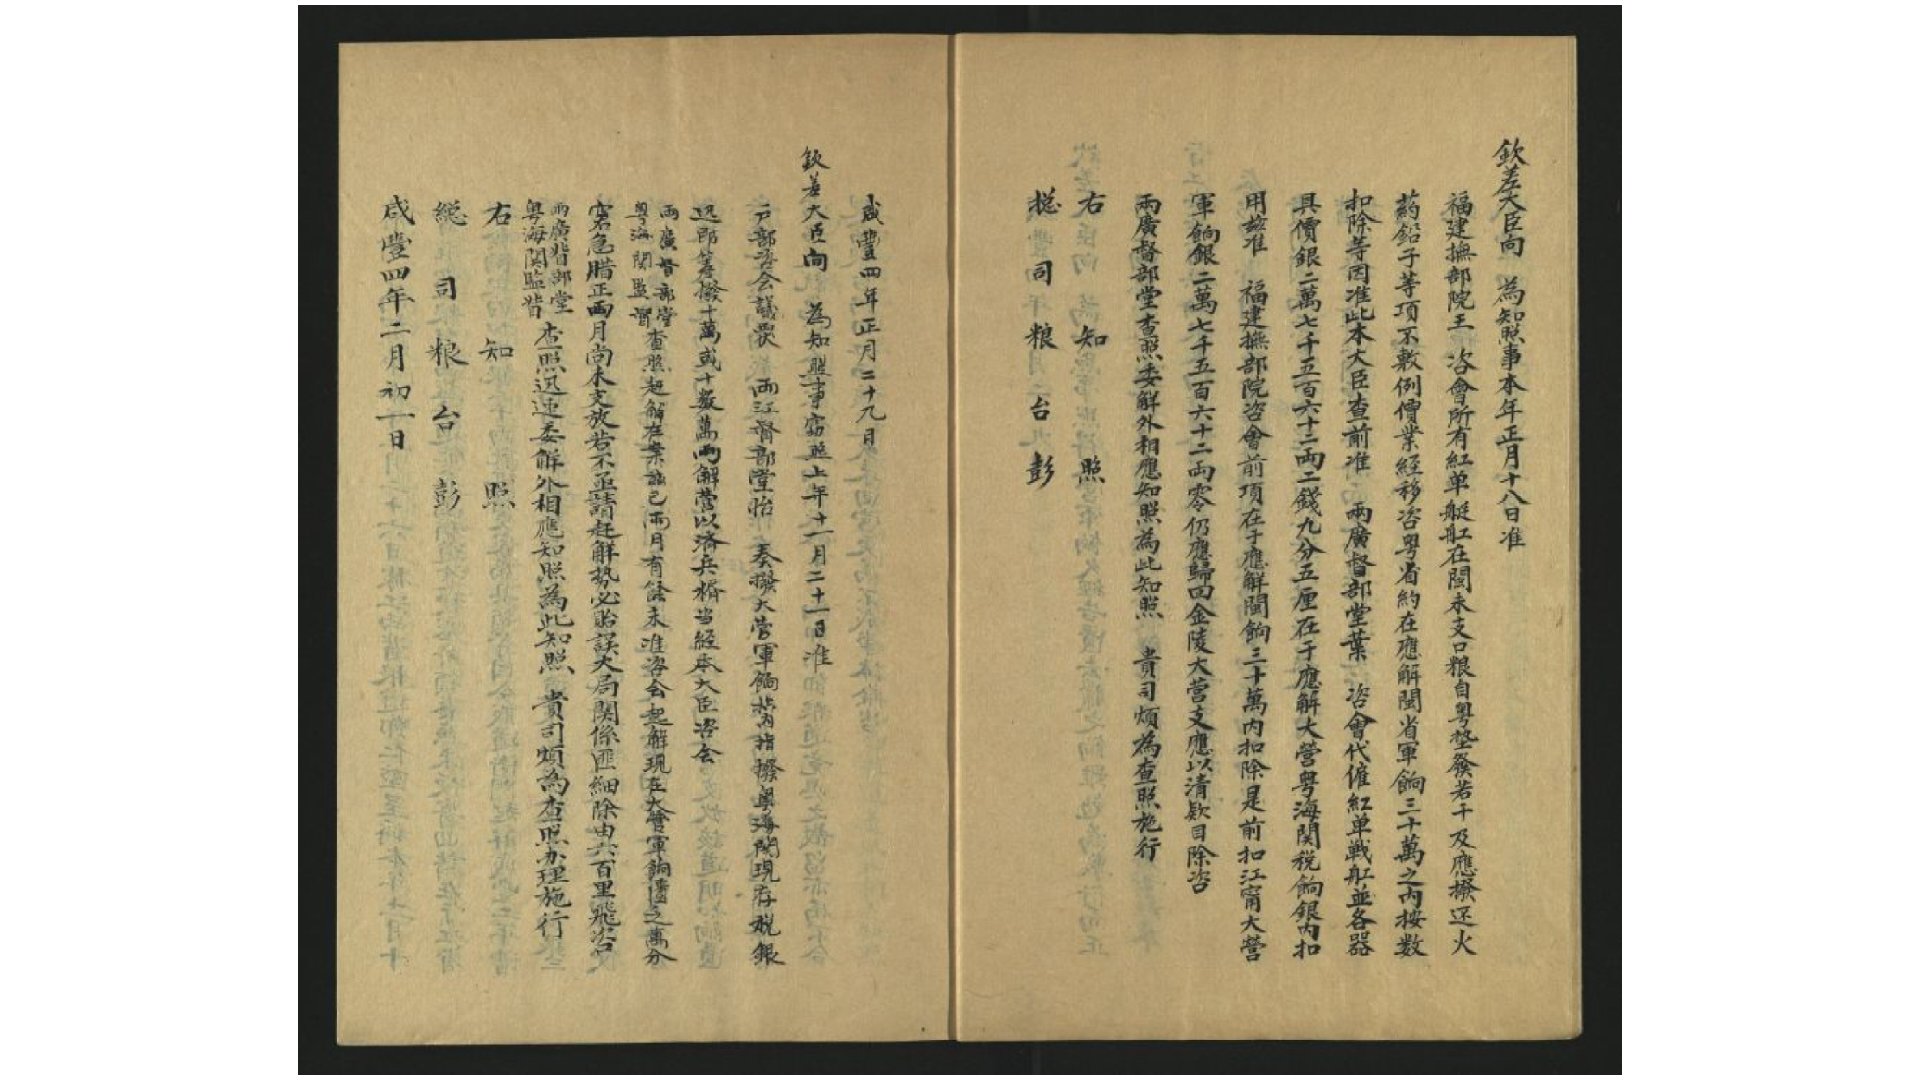 欽差大臣向　為知照事本年正月十八日准
福建撫部院王　咨會所有紅单艇舡在閩未支口粮自粤墊發若干及應撥还火
葯鉛子等項不敷例價業経移咨粤省約在應解閩省軍餉三十萬之内按数
扣除等因准此本大臣查前准　兩廣督部堂葉　咨會代僱紅单戦舡並各器
具價銀二萬七千五百六十二両二錢九分五厘在于應解大營粤海関税餉銀内扣
用玆准　福建撫部院咨會前項在于應解閩餉三十萬内扣除是前扣江甯大營
軍餉銀二萬七千五百六十二両零仍應歸回金陵大营支應以清欵目除咨
兩廣督部堂查照委解外相應知照為此知照　貴司煩為查照施行
右　知　照
総　司　粮　台　彭
咸豐四年正月二十九日
欽差大臣向　為知照事窃照上年十一月二十一日准
戶部咨会議覆　兩江督部堂怡　奏撥大营軍餉摺指撥粤海関現存税銀
迅即筹撥十萬或十数萬両解营以济兵糈当経本大臣咨会
兩廣督部堂
粤海関监督
查照起解在案迄已両月有餘未准咨会起解現在大營軍餉僅乏萬分
窘急腊正両月尚未支放若不亟請赶解势必貽誤大局関係匪細除由六百里飛咨
兩廣督部堂
粤海関監督
查照迅速委解外相應知照為此知照　貴司煩為查照办理施行
右　知　照
総　司　粮　台　彭
咸豐四年二月初一日